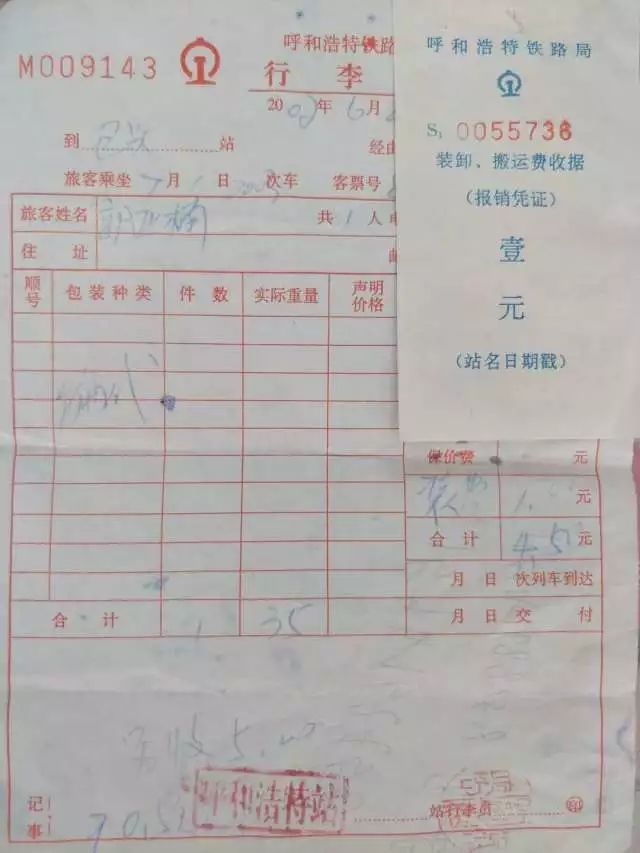 M009143
呼和浩特铁路
行 李
2002年6月
到包头站
经由
旅客乘坐7月1日 次车 客票号
旅客姓名 共1人
住 址
顺号 包装种类 件数 实际重量 声明价格
保价费 元
1. 元
合计 4.5 元
月 日 次列车到达
合计 1 35
月 日 交 付
收5.00
记事
呼和浩特站
站行李员 印
呼和浩特铁路局
S₁ 0055736
装卸、搬运费收据
(报销凭证)
壹
元
(站名日期戳)